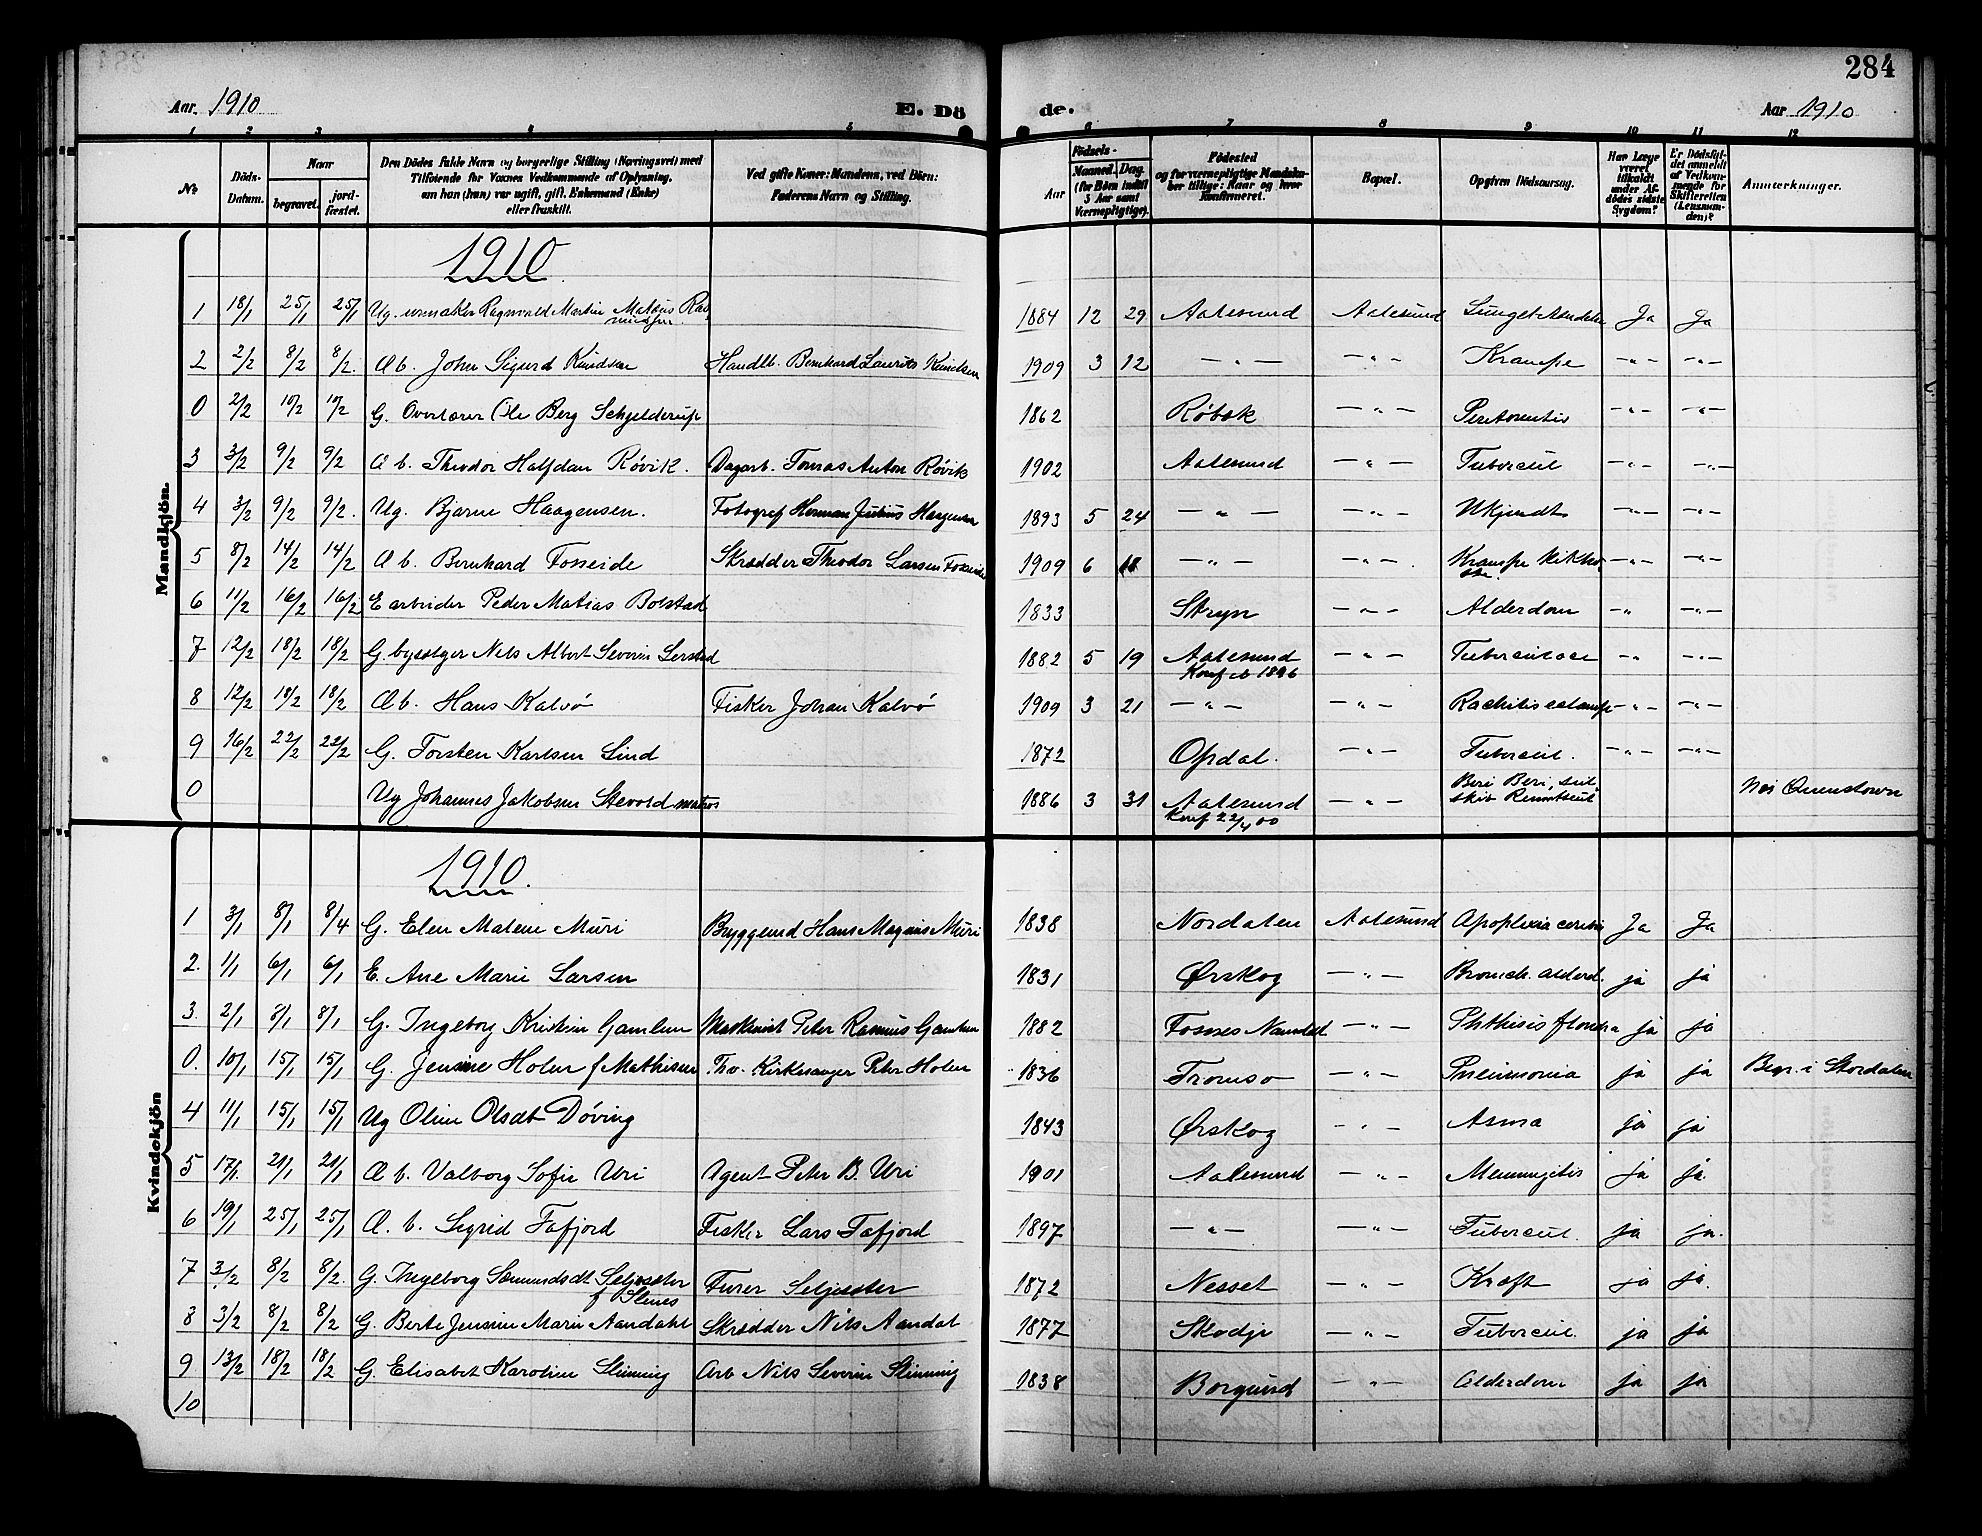 284
Aar. 1910 E. Dö de. Aar 1910
1 2 3 4 5 6 7 8 9 10 11 12
No
Döds-Datum.
Naar begravet. jordfæstet.
Den Dödes fulde Navn og borgerlige Stilling (Næringsvei) med Tilföiende for Voxnes Vedkommende af Oplysning, om han (hun) var ugift, gift, Enkemand (Enke) eller fraskilt.
Ved gifte Koner: Mandens, ved Börn: Faderens Navn og Stilling.
Födsels-
Aar Maaned. Dag. (for Börn indtil 5 Aar samt Værnepligtige).
Födested og for værnepligtige Mandskaber tillige: Naar og hvor konfirmeret.
Bopæl.
Opgiven Dödsaarsag.
Har Læge været tilkaldt under Afdödes sidste Sygdom?
Er Dödsfaldet anmeldt af Vedkommende for Skifteretten (Lensmanden)?
Anmærkninger.
Mandkjön.
1910
1 18/1 25/1 25/1 Ug. urmaker Ragnvald Martin Mathias Rasmussen 1884 12 29 Aalesund Aalesund Ja Ja
2 2/2 8/2 8/2. Æ b. John Sigurd Knudsen Handlb. Bernhard Laurits Knudsen 1909 3 12 — " — — " — Krampe — " — — " —
0 2/2 10/2 10/2 G. Overlærer Ole Berg Schjelderup 1862 Røbæk — " — Peritonentis — " — — " —
3 3/2 9/2 9/2 Æ b. Theodor Halfdan Røvik. Dagarb. Tomas Anton Røvik 1902 Aalesund — " — Tubercul — " — — " —
4 3/2 9/2 9/2. Ug. Bjarne Haagensen. Fotograf Herman Julius Haagensen 1893 5 24 — " — — " — Ukjendt — " — — " —
5 8/2 14/2 14/2 Æ b. Bernhard Fosseide Skrædder Theodor Larsen Fosseide 1909 6 — " — — " — Krampe Kikhoste. — " — — " —
6 11/2 16/2 16/2 E arbeider Peder Matias Bolstad 1833 Stryn — " — Alderdom — " — " —
7 12/2 18/2 18/2 G. bysælger Nils Albert Severin Lerstad 1882 5 19 Aalesund — " — Tuberculose — " — — " —
Konf. 1896
8 12/2 18/2 18/2 Æ b. Hans Kalvø Fisker Johan Kalvø 1909 3 21 — " — — " — Rachitis eclamp — " — — " —
9 16/2 22/2 22/2 G. Torsten Karlsen Lind 1872 Opdal. — " — Tubercul. — " — — " —
0 Ug Johannes Jakobsen Stevold matros 1886 3 31 Aalesund — " — Beri Beri, Queenstown
Konf 22/4 00
Kvindekjön
1910.
1 3/1 8/1 8/4 G. Elen Malene Muri Bryggemd Hans Magnus Muri 1838 Nordalen Aalesund Apoplexia cerebri Ja Ja
2. 1/1 6/1 6/1 E. Ane Marie Larsen 1831 Ørskog — " — Bronch. alderd. ja ja
3. 2/1 8/1 8/1 G. Ingeborg Kristine Gamlem Maskinist Peter Rasmus Gamlem 1882 Fosnes Namdal — " — Phthisis florida ja ja
0. 10/1 15/1 15/1 G. Jensine Holen f Mathisen Fhv. Kirkesanger Peter Holen 1836 Tromsø — " — Pneumonia ja ja Begr. i Stordalen
4 11/1 15/1 15/1 Ug Oline Olsdt Døving 1843 Ørskog — " — Asma ja ja
5 17/1. 21/1 21/1 Æ b. Valborg Sofie Uri Agent Peter B. Uri 1901 Aalesund — " — Menningitis ja ja.
6 19/1 25/1 25/1 Æ. b. Sigrid Tafjord Fisker Lars Tafjord 1897 — " — — " — Tubercul. ja ja.
7 3/2 8/2 8/2. G. Ingeborg Sæmundsdt Seljesæter Furer Seljesæter 1872 Nesset — " — Kræft ja ja.
8 3/2 8/2 8/2 G. Berte Jensine Marie Aandahl Skrædder Nils Aandal 1877 Skodje — " — Tubercul. ja ja
9 13/2 18/2 18/2 G. Elisabet Karoline Slinning Arb Nils Severin Slinning 1838 Borgund — " — Alderdom ja ja
10